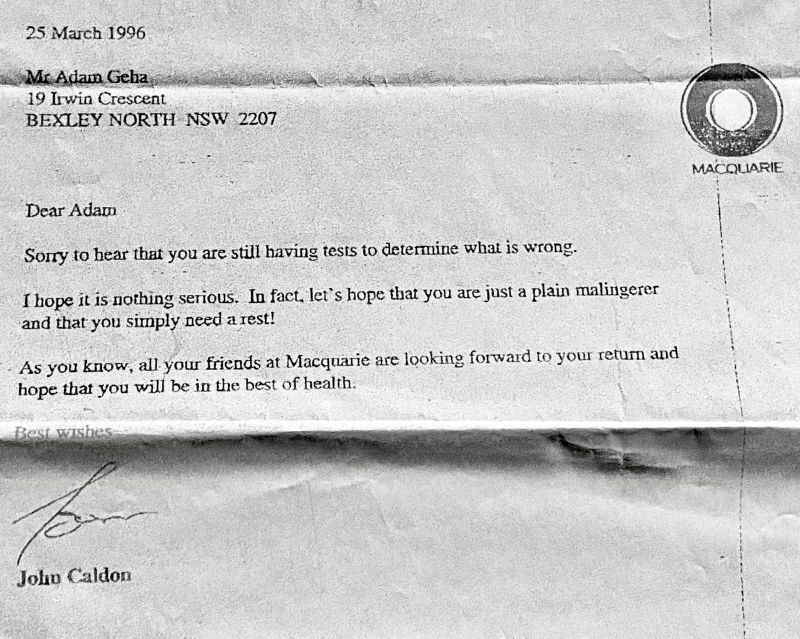 25 March 1996
Mr Adam Geha
19 Irwin Crescent
BEXLEY NORTH NSW 2207
MACQUARIE
Dear Adam
Sorry to hear that you are still having tests to determine what is wrong.
I hope it is nothing serious. In fact, let's hope that you are just a plain malingerer
and that you simply need a rest!
As you know, all your friends at Macquarie are looking forward to your return and
hope that you will be in the best of health.
Best wishes
John Caldon